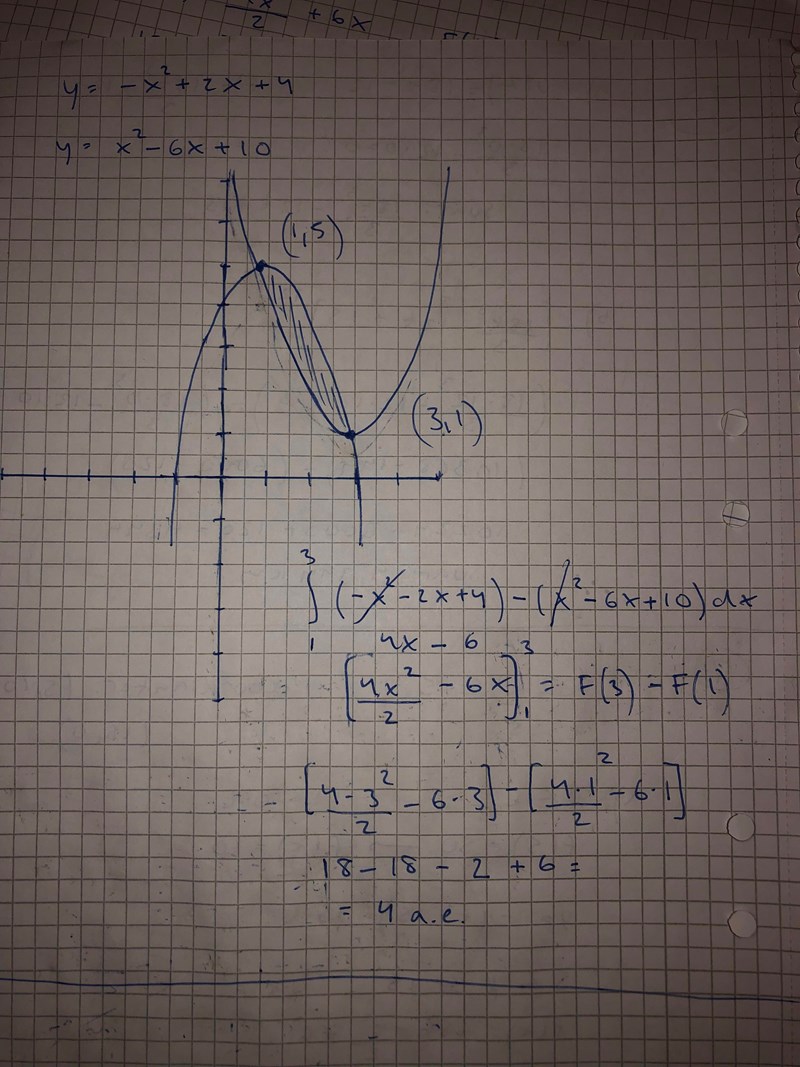 2 + 6x
y = -x² + 2x + 4
y = x² - 6x + 10
(1,5)
(3,1)
3
∫ (-x² - 2x + 4) - (x² - 6x + 10) dx
1 4x - 6
= [4x²/2 - 6x]³₁ = F(3) - F(1)
- [4·3²/2 - 6·3] - [4·1²/2 - 6·1]
18 - 18 - 2 + 6 =
= 4 a.e.